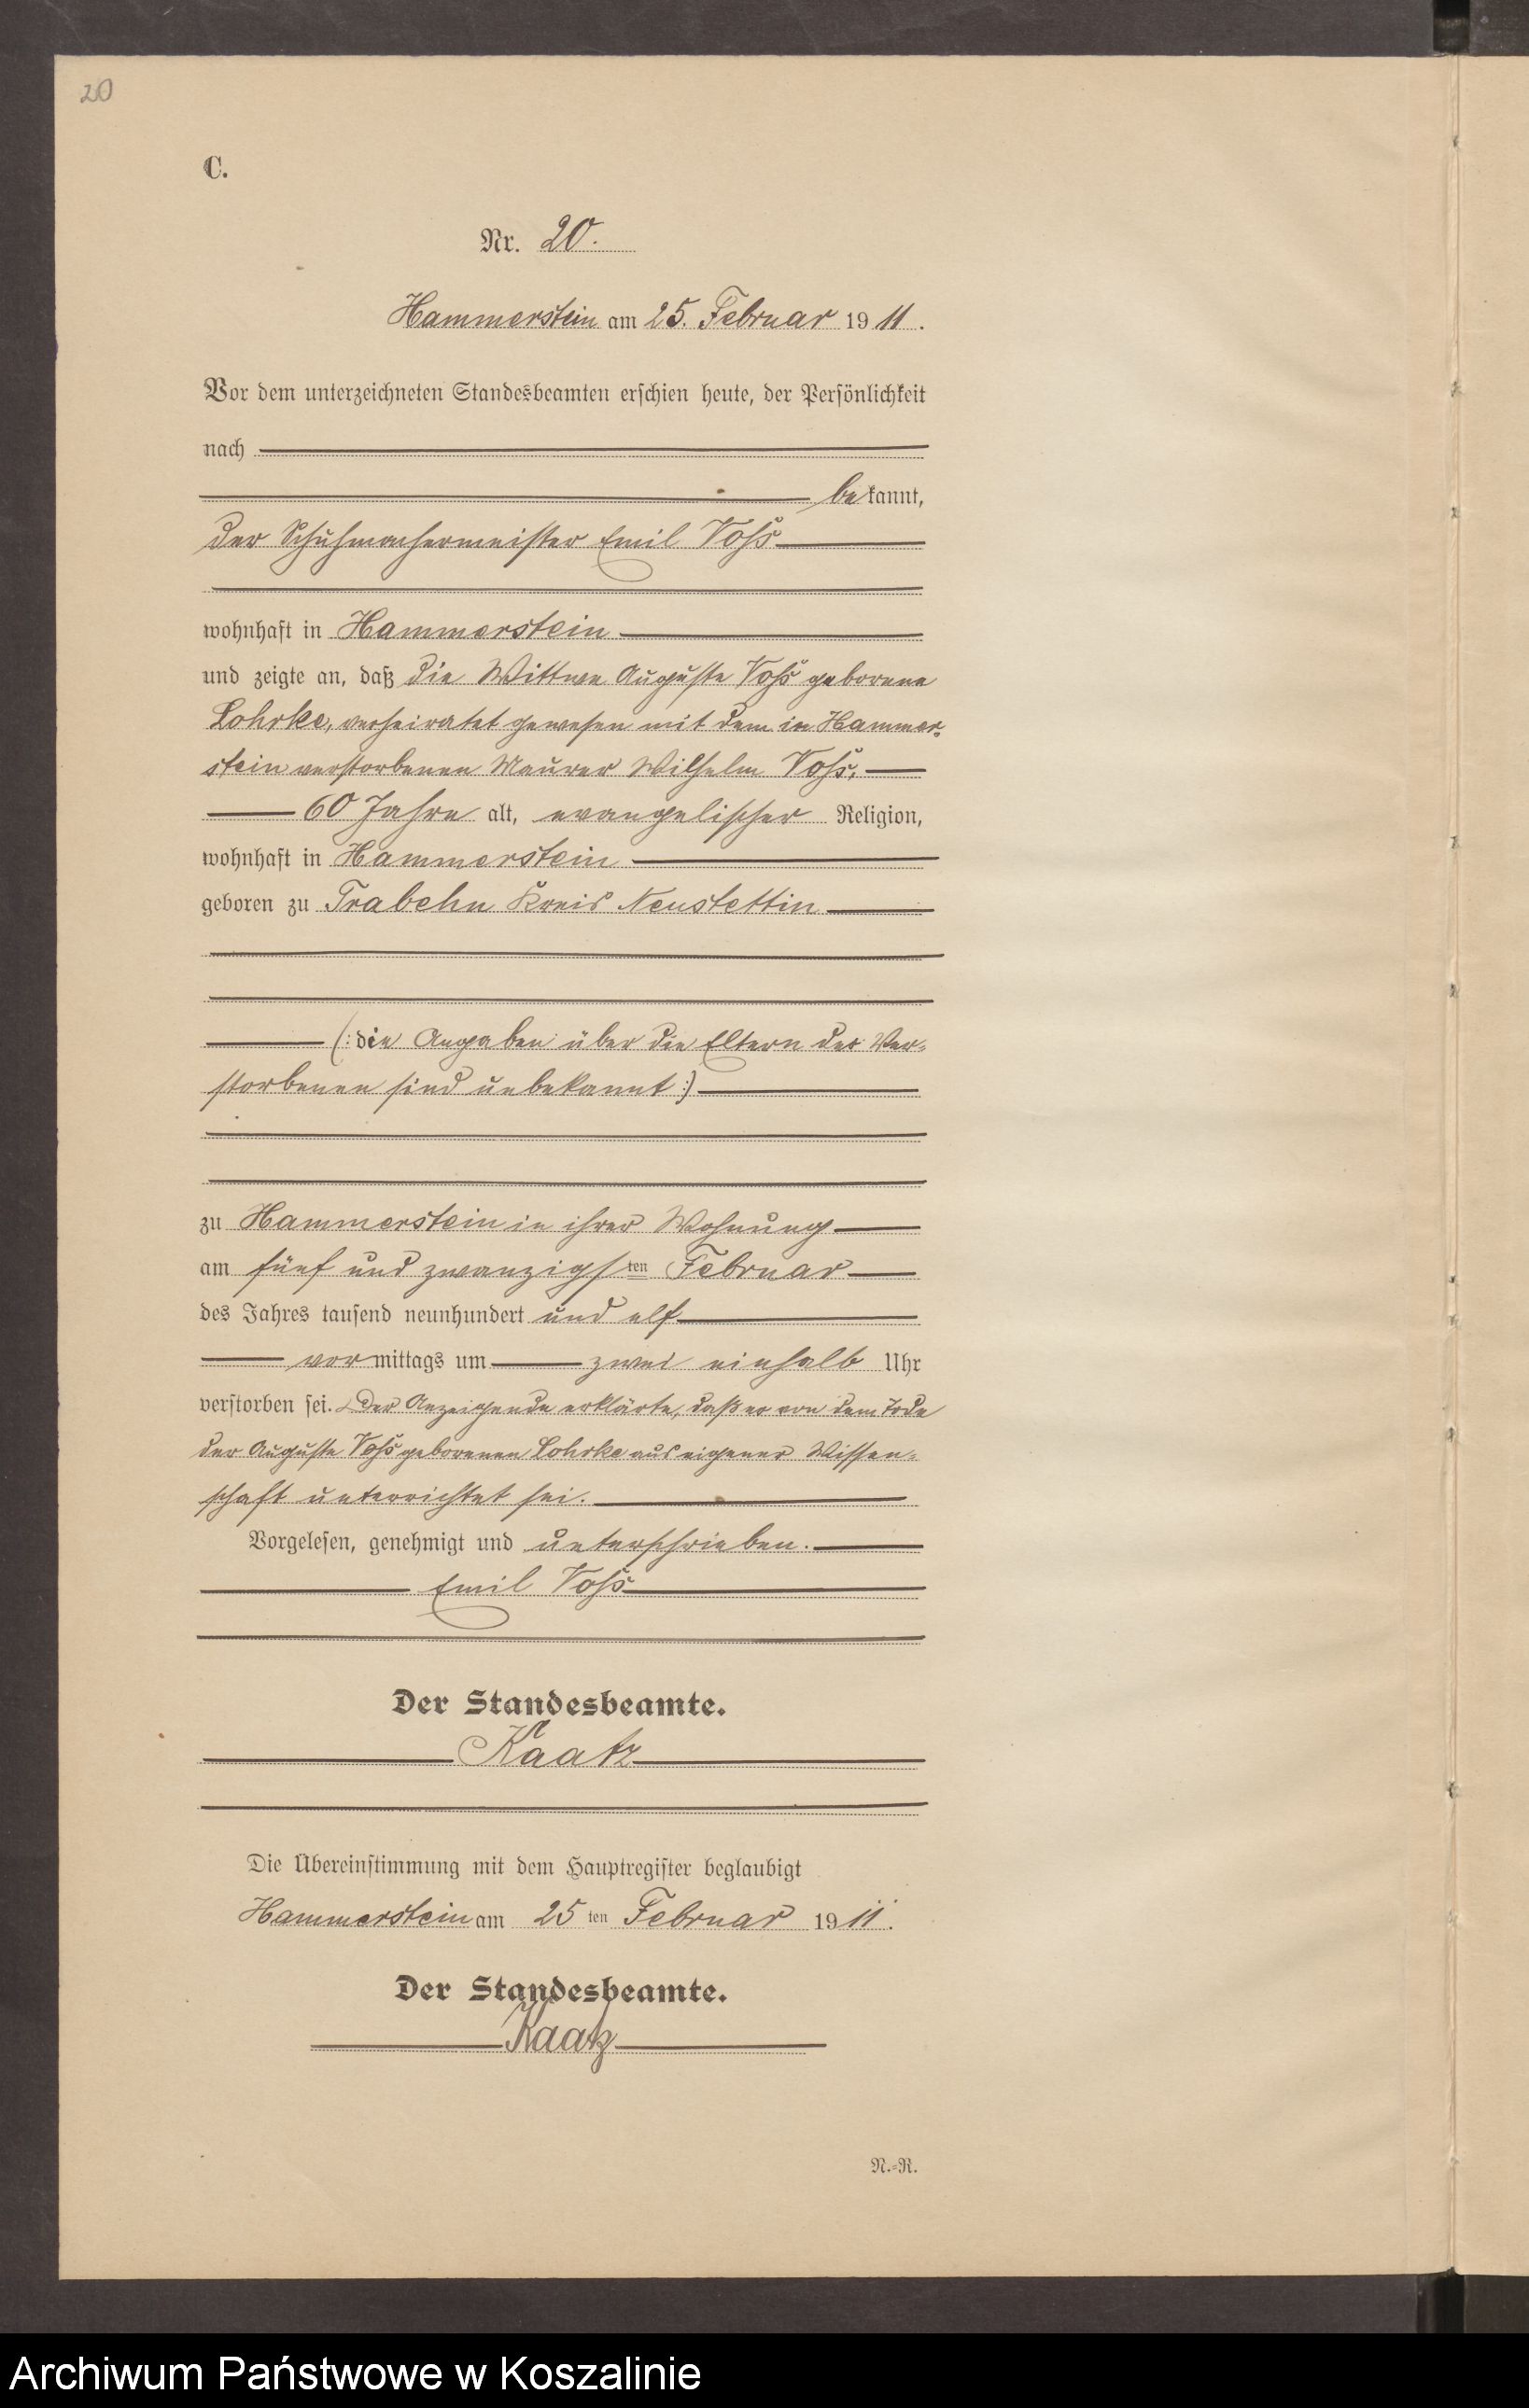 20
C.
Nr. 20.
Hammerstein am 25. Februar 1911.
Vor dem unterzeichneten Standesbeamten erschien heute, der Persönlichkeit
nach
bekannt,
der Schuhmachermeister Emil Voß
wohnhaft in Hammerstein
und zeigte an, daß die Wittwe Auguste Voß geborene
Lohrke, verheiratet gewesen mit dem in Hammer-
stein verstorbenen Maurer Wilhelm Voß,
60 Jahre alt, evangelischer Religion,
wohnhaft in Hammerstein
geboren zu Trabehn Kreis Neustettin
(: die Angaben über die Eltern der Ver-
storbenen sind unbekannt :)
zu Hammerstein in ihrer Wohnung
am fünf und zwanzigsten Februar
des Jahres tausend neunhundert und elf
vormittags um zwei einhalb Uhr
verstorben sei. Der Anzeigende erklärte, daß er von dem Tode
der Auguste Voß geborenen Lohrke aus eigener Wissen-
schaft unterrichtet sei.
Vorgelesen, genehmigt und unterschrieben.
Emil Voß
Der Standesbeamte.
Kaatz
Die Übereinstimmung mit dem Hauptregister beglaubigt
Hammerstein am 25 ten Februar 1911.
Der Standesbeamte.
Kaatz
N.-R.
Archiwum Państwowe w Koszalinie